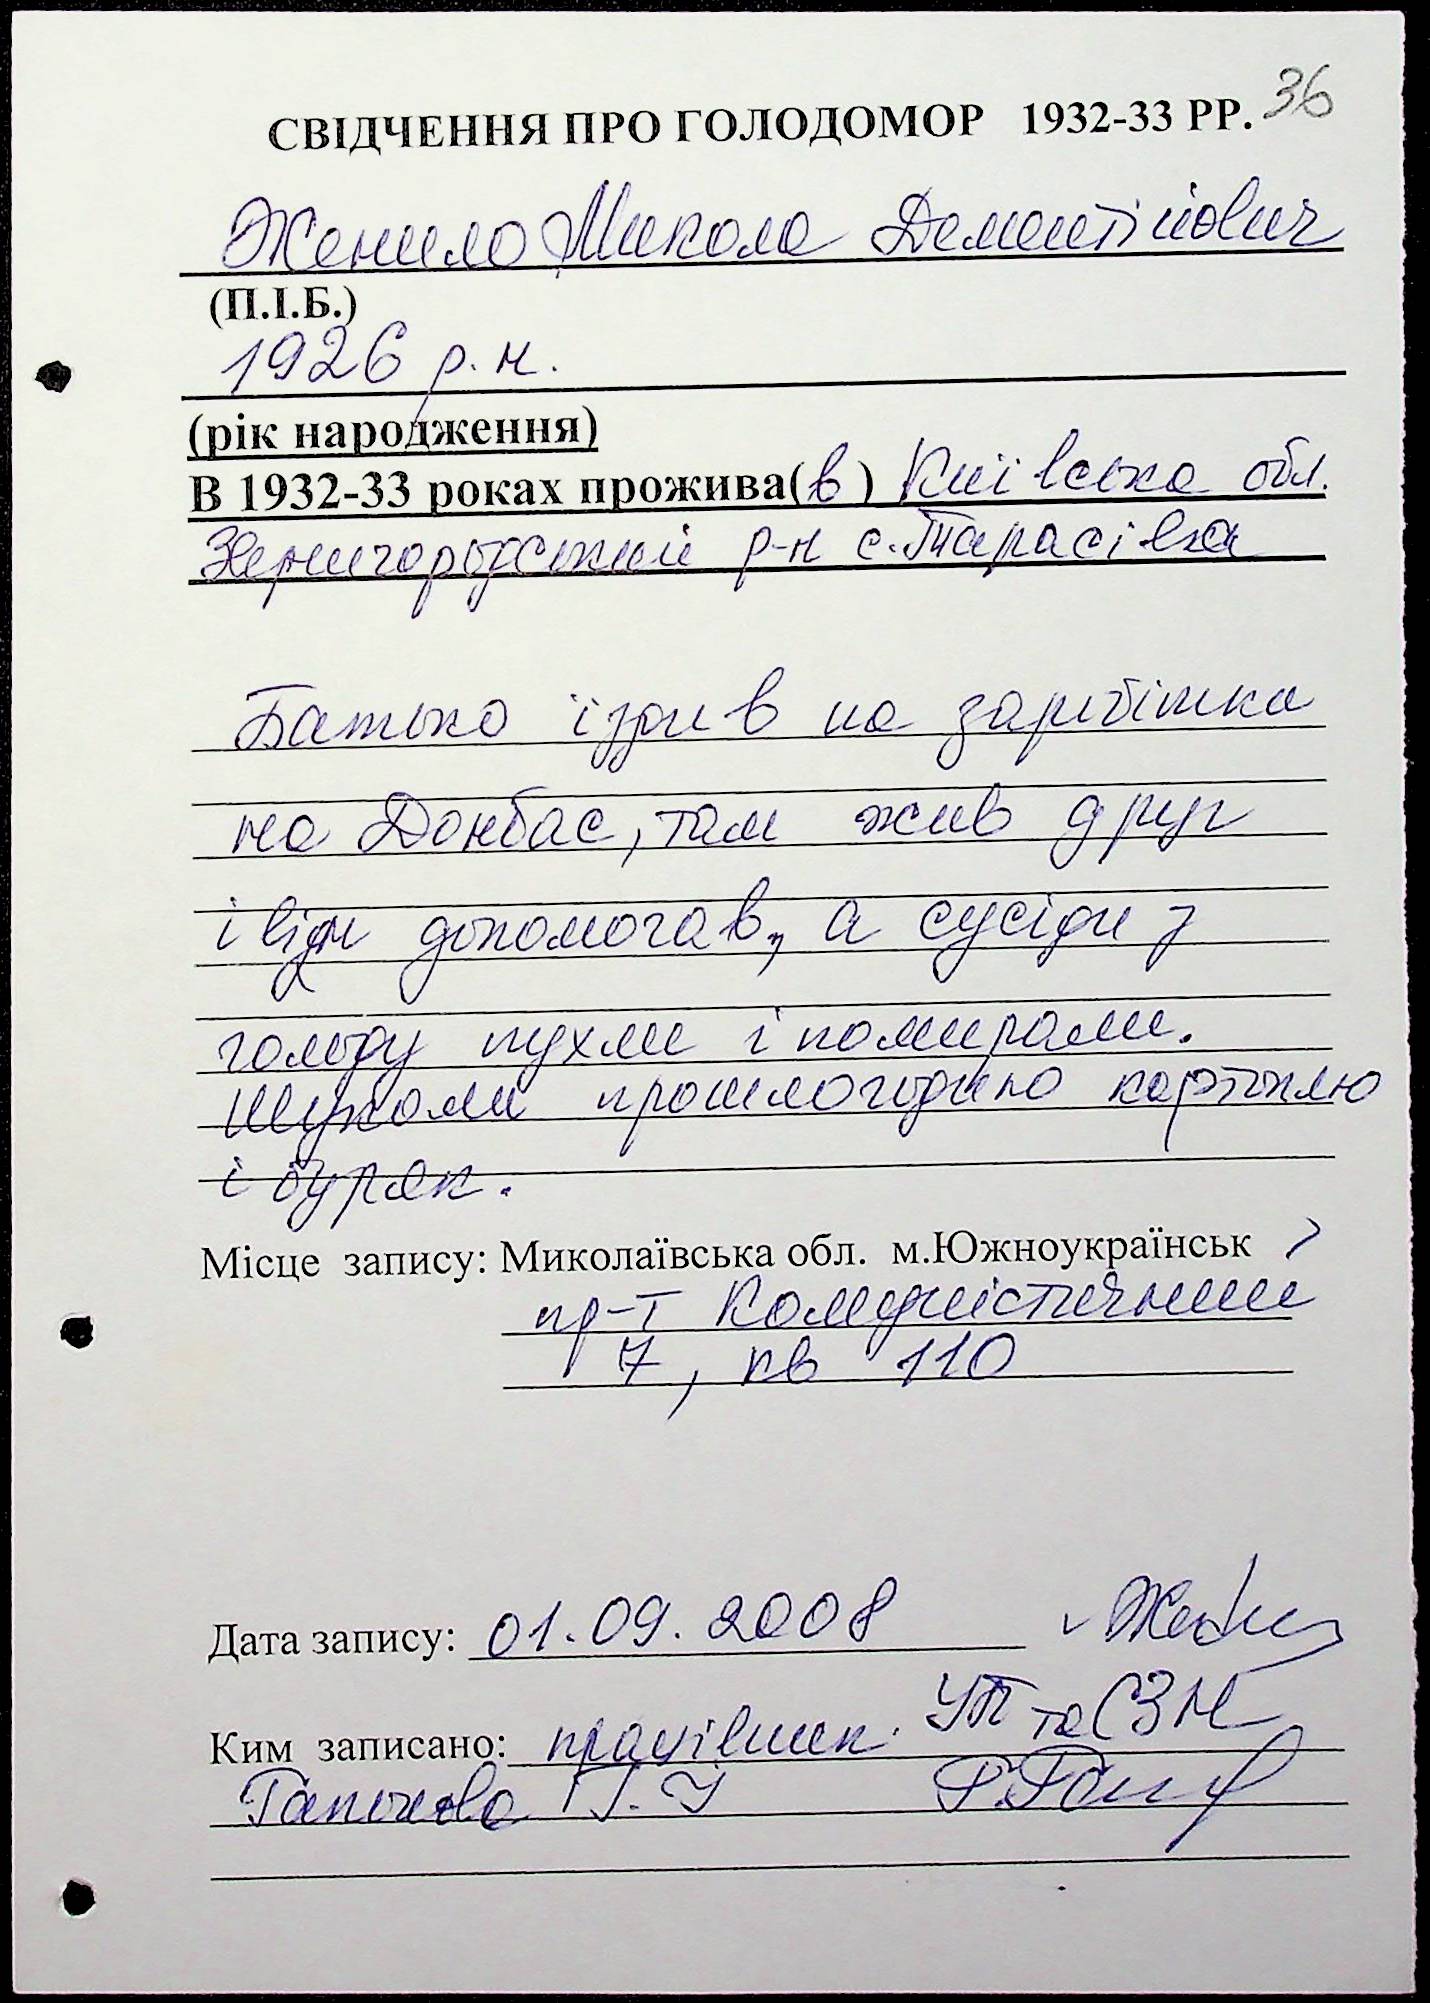 36
СВІДЧЕННЯ ПРО ГОЛОДОМОР 1932-33 РР.
Женило Микола Дементійович
(П.І.Б.)
1926 р.н.
(рік народження)
В 1932-33 роках прожива(в) Київська обл.
Звенигородський р-н с.Тарасівка
Батько їздив на заробітки
на Донбас, там жив друг
і він допомогав, а сусіди з
голоду пухли і помирали.
Шукали прошлогодню картоплю
і буряк.
Місце запису: Миколаївська обл. м.Южноукраїнськ
пр-т Комуністичний
7, кв 110
Дата запису: 01.09.2008
Ким записано: працівник УП та СЗН